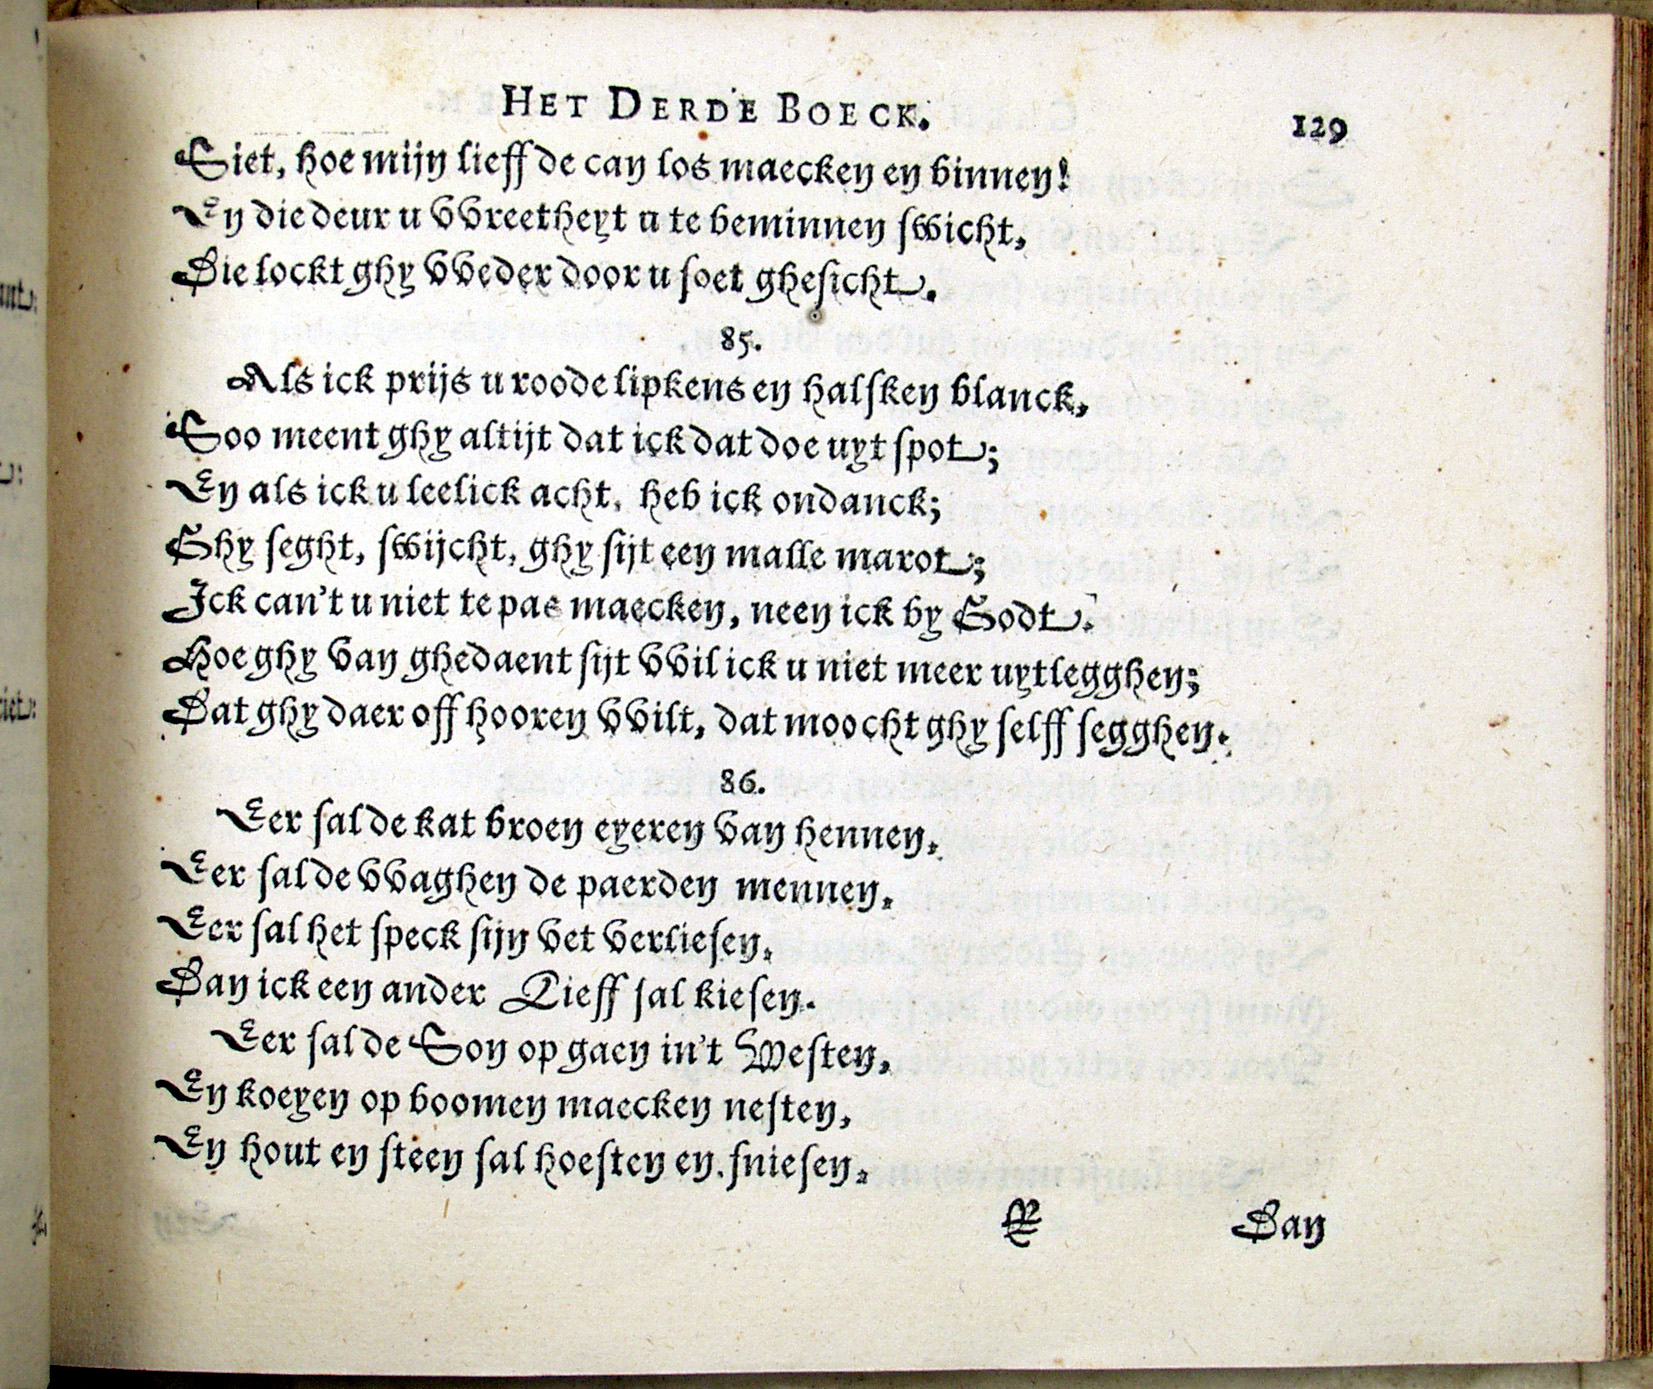 HET DERDE BOECK.
129
Siet, hoe mijn lieffde can los maecken en binnen!
En die deur u VVreetheyt u te beminnen swicht,
Die lockt ghy VVeder door u soet ghesicht.
85.
Als ick prijs u roode lipkens en halsken blanck,
Soo meent ghy altijt dat ick dat doe uyt spot;
En als ick u leelick acht, heb ick ondanck;
Ghy seght, swijcht, ghy sijt een malle marot;
Ick can't u niet te pas maecken, neen ick by Godt.
Hoe ghy van ghedaent sijt VVil ick u niet meer uytlegghen;
Dat ghy daer off hooren VVilt, dat moocht ghy selff segghen.
86.
Eer sal de kat broen eyeren van hennen,
Eer sal de VVaghen de paerden mennen,
Eer sal het speck sijn vet verliesen,
Dan ick een ander Lieff sal kiesen.
Eer sal de Son op gaen in't Westen,
En koeyen op boomen maecken nesten,
En hout en steen sal hoesten en sniesen,
R Dan